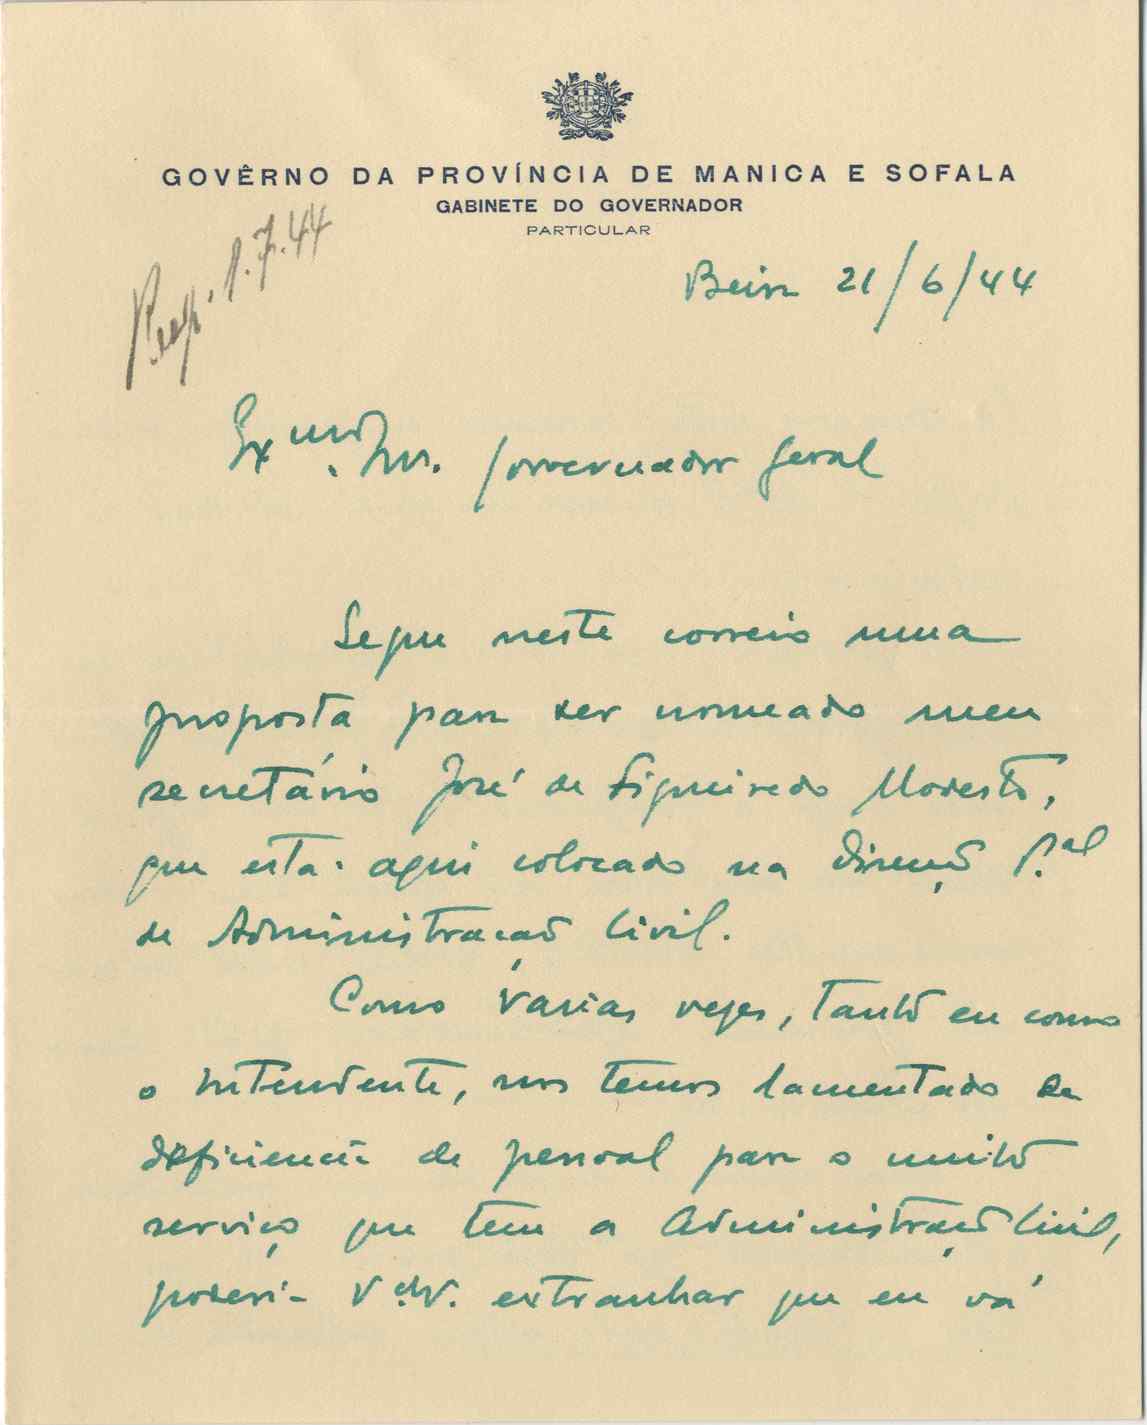 GOVÊRNO DA PROVÍNCIA DE MANICA E SOFALA
GABINETE DO GOVERNADOR
PARTICULAR
Resp. 1.7.44
Beira 21/6/44
Exmo. Snr. Governador Geral
Segue neste correio uma
proposta para ser nomeado meu
secretário José de Figueiredo Modesto,
que está aqui colocado na Direção P.al
de Administração Civil.
Como varias vezes, tanto eu como
o Intendente, nos temos lamentado da
deficiencia de pessoal para o muito
serviço que tem a Administração Civil,
poderia V. extranhar que eu vá